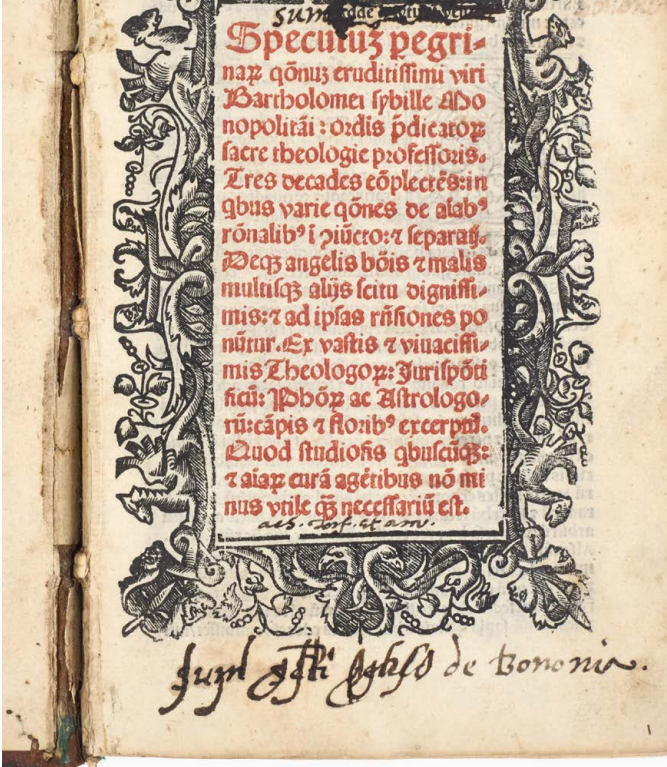 sum
Speculuꝫ pegri-
naꝝ qōnuꝫ eruditissimi viri
Bartholomei sybille Mo
nopolitāi : ordis p̄dicatoꝝ
sacre theologie professoris.
Tres decades cōplectēs: in
qbus varie qōnes de aīabꝰ
rōnalibꝰ ī ꝯiūcto: ⁊ separatꝭ.
Deqꝫ angelis bōis ⁊ malis
multisqꝫ alijs scitu dignissi-
mis: ⁊ ad ipsas rn̄siones po
nūtur. Ex vastis ⁊ viuacissi-
mis Theologoꝝ: Jurispōti
ficū: Phōꝝ ac Astrologo-
rū: cāpis ⁊ floribꝰ excerptū.
Quod studiosis qbuscūqꝫ:
⁊ aiaꝝ curā agētibus nō mi
nus vtile qꝫ̄ necessariū est.
de Bononia.